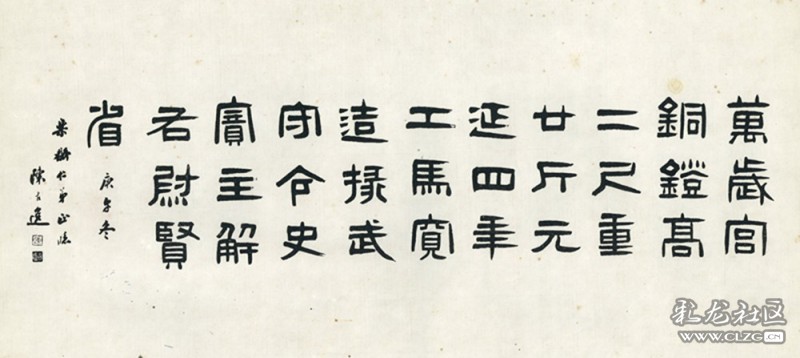 萬歲宮
銅鐙高
二尺重
廿斤元
延四年
工馬寬
造掾武
守令史
寶主解
右尉賢
省
庚午冬
仁弟正临
陳
乳龙社区
WWW.CLZG.CN